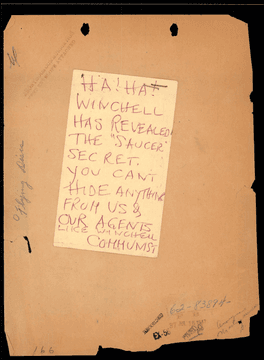 HA! HA!
WINCHELL
HAS REVEALED
THE "SAUCER"
SECRET.
YOU CAN'T
HIDE ANYTHING
FROM US &
OUR AGENTS
LIKE WINCHELL
COMMUNIST
"Flying Discs
166